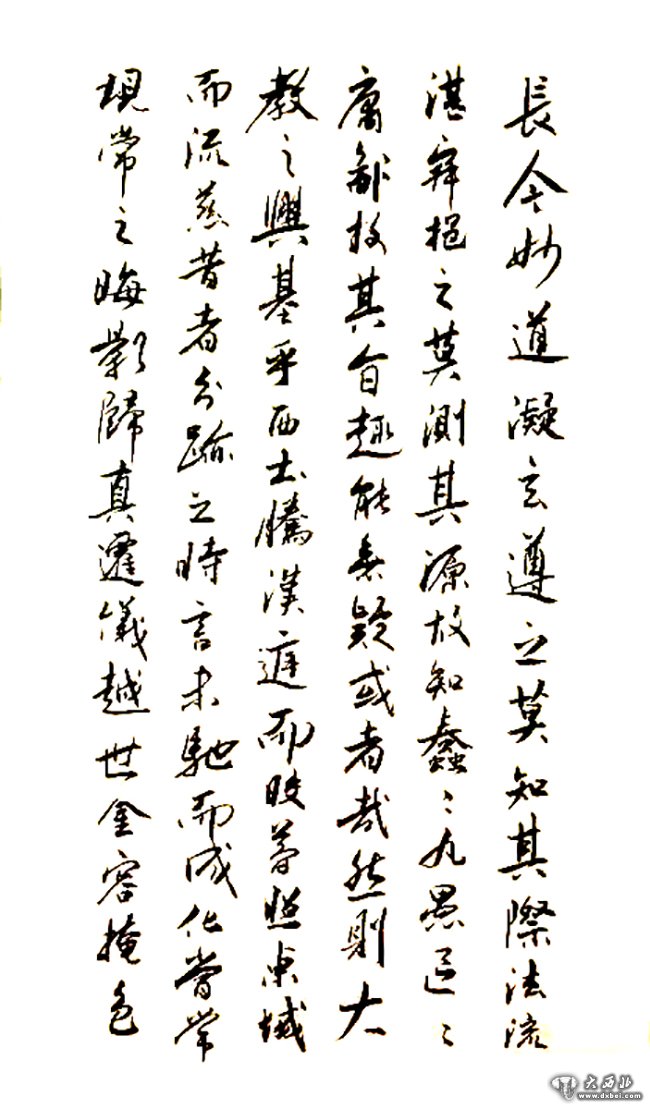 長今妙道凝玄遵之莫知其際法流
湛寂挹之莫測其源故知蠢々凡愚區々
庸鄙投其旨趣能無疑或者哉然則大
教之興基乎西土騰漢庭而皎夢照東域
而流慈昔者分跡之時言未馳而成化當常
現常之晦影歸真遷儀越世金容掩色
大西北
www.dxbei.com